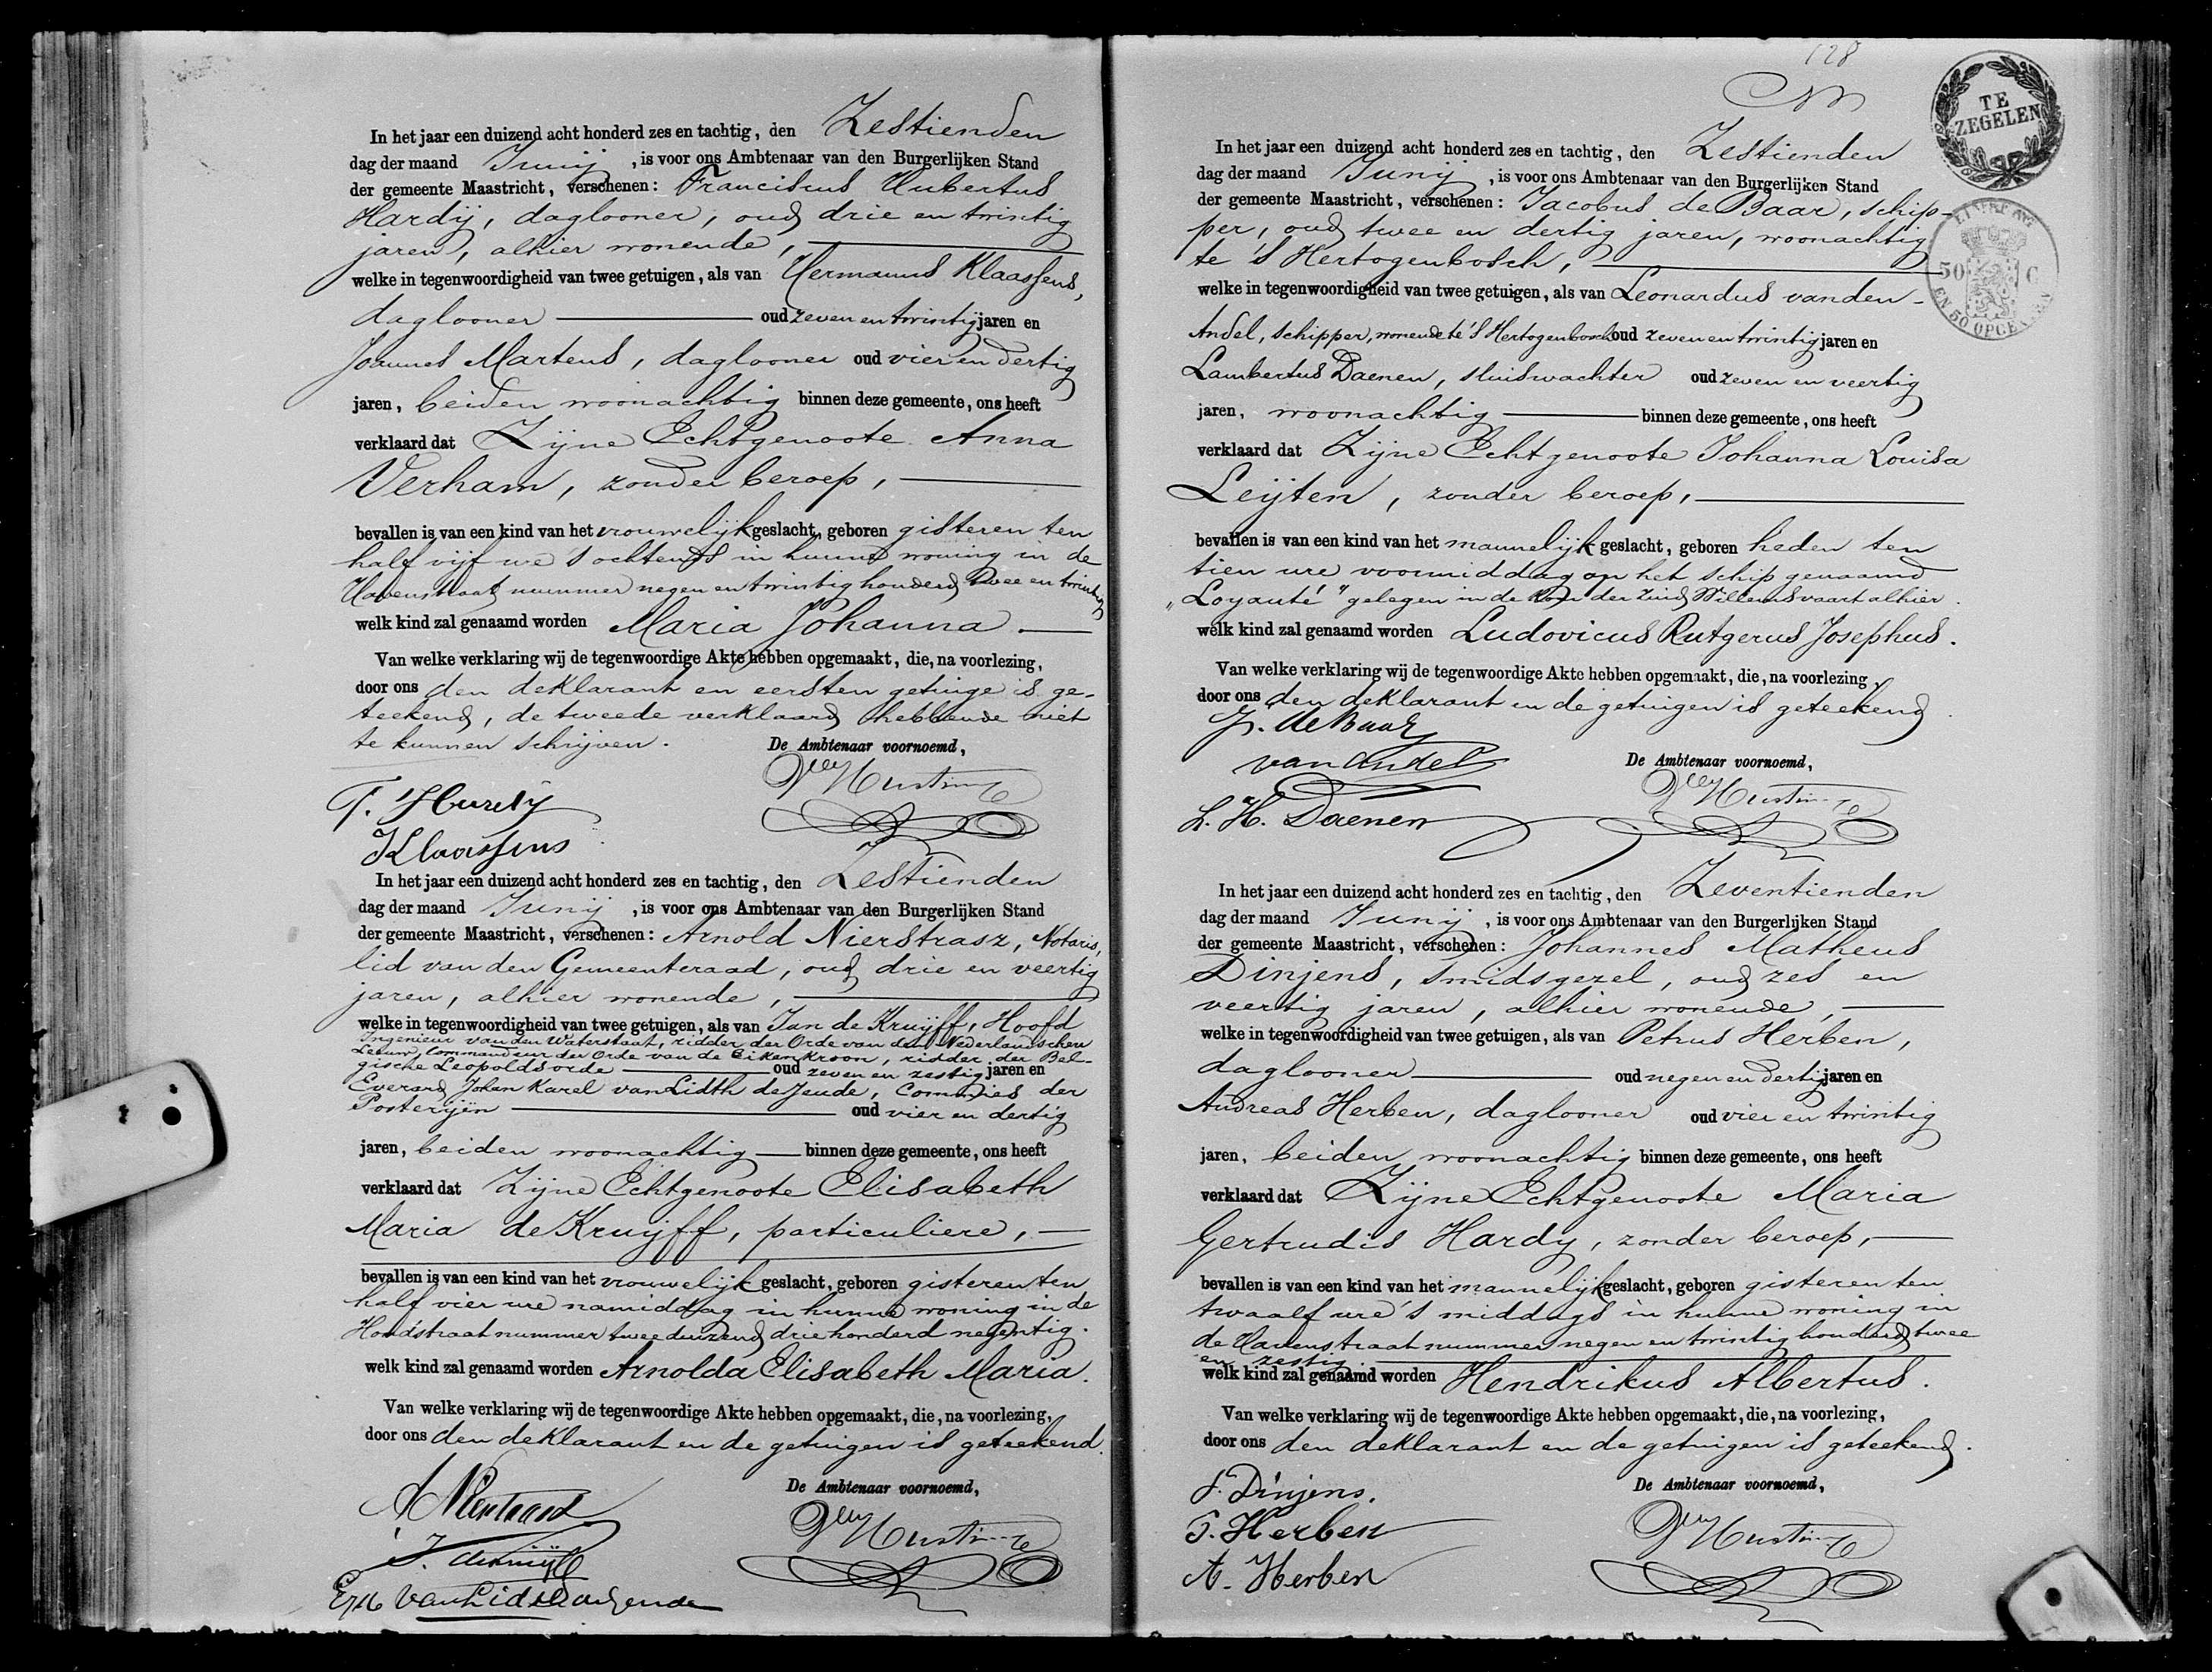 In het jaar een duizend acht honderd zes en tachtig, den Zestienden
dag der maand Junij, is voor ons Ambtenaar van den Burgerlijken Stand
der gemeente Maastricht, verschenen: Franciscus Hubertus
Hardij, daglooner, oud drie en twintig
jaren, alhier wonende,
welke in tegenwoordigheid van twee getuigen, als van Hermanus Klaassens,
daglooner oud zeven en twintig jaren en
Joannes Martens, daglooner oud vier en dertig
jaren, beiden woonachtig binnen deze gemeente, ons heeft
verklaard dat Zijne Echtgenoote Anna
Verham, zonder beroep,
bevallen is van een kind van het vrouwelijk geslacht, geboren gisteren ten
half vijf ure 's ochtends in hunne woning in de
Havenstraat nummer negen en twintig honderd twee en twintig
welk kind zal genaamd worden Maria Johanna
Van welke verklaring wij de tegenwoordige Akte hebben opgemaakt, die, na voorlezing,
door ons den deklarant en eersten getuige is ge-
teekend, de tweede verklaard hebbende niet
te kunnen schrijven.
De Ambtenaar voornoemd,
F. Hardij
Klaassens
In het jaar een duizend acht honderd zes en tachtig, den Zestienden
dag der maand Junij, is voor ons Ambtenaar van den Burgerlijken Stand
der gemeente Maastricht, verschenen: Arnold Nierstrasz, Notaris,
lid van den Gemeenteraad, oud drie en veertig
jaren, alhier wonende,
welke in tegenwoordigheid van twee getuigen, als van Jan de Kruijff, Hoofd
Ingenieur van den Waterstaat, ridder der Orde van den Nederlandschen
Leeuw, Commandeur der Orde van de Eikenkroon, ridder der Bel-
gische Leopoldsorde oud zeven en zestig jaren en
Everard Johan Karel van Lidth de Jeude, Commies der
Posterijen oud vier en dertig
jaren, beiden woonachtig binnen deze gemeente, ons heeft
verklaard dat Zijne Echtgenoote Elisabeth
Maria de Kruijff, particuliere,
bevallen is van een kind van het vrouwelijk geslacht, geboren gisteren ten
half vier ure namiddag in hunne woning in de
Hondstraat nummer twee duizend driehonderd negentig.
welk kind zal genaamd worden Arnolda Elisabeth Maria.
Van welke verklaring wij de tegenwoordige Akte hebben opgemaakt, die, na voorlezing,
door ons den deklarant en de getuigen is geteekend.
De Ambtenaar voornoemd,
A Nierstrasz
128
TE
ZEGELEN
LIMBURG
50 C
EN 50 OPCEN
In het jaar een duizend acht honderd zes en tachtig, den Zestienden
dag der maand Junij, is voor ons Ambtenaar van den Burgerlijken Stand
der gemeente Maastricht, verschenen: Jacobus de Baar, schip-
per, oud twee en dertig jaren, woonachtig
te 's Hertogenbosch,
welke in tegenwoordigheid van twee getuigen, als van Leonardus van den
Andel, schipper, wonende te 's Hertogenbosch oud zeven en twintig jaren en
Lambertus Daenen, sluiswachter oud zeven en veertig
jaren, woonachtig binnen deze gemeente, ons heeft
verklaard dat Zijne Echtgenoote Johanna Louisa
Leijten, zonder beroep,
bevallen is van een kind van het mannelijk geslacht, geboren heden ten
tien ure voormiddag op het schip genaamd
„Loyauté" gelegen in de kom der Zuid Willemsvaart alhier.
welk kind zal genaamd worden Ludovicus Rutgerus Josephus.
Van welke verklaring wij de tegenwoordige Akte hebben opgemaakt, die, na voorlezing,
door ons den deklarant en de getuigen is geteekend
J. de Baar
van Andel
L. H. Daenen
De Ambtenaar voornoemd,
In het jaar een duizend acht honderd zes en tachtig, den Zeventienden
dag der maand Junij, is voor ons Ambtenaar van den Burgerlijken Stand
der gemeente Maastricht, verschenen: Johannes Matheus
Dinjens, smidsgezel, oud zes en
veertig jaren, alhier wonende,
welke in tegenwoordigheid van twee getuigen, als van Petrus Herben,
daglooner oud negen en dertig jaren en
Andreas Herben, daglooner oud vier en twintig
jaren, beiden woonachtig binnen deze gemeente, ons heeft
verklaard dat Zijne Echtgenoote Maria
Gertrudis Hardy, zonder beroep,
bevallen is van een kind van het mannelijk geslacht, geboren gisteren ten
twaalf ure 's middags in hunne woning in
de Havenstraat nummer negen en twintig honderd twee
en zestig.
welk kind zal genaamd worden Hendrikus Albertus.
Van welke verklaring wij de tegenwoordige Akte hebben opgemaakt, die, na voorlezing,
door ons den deklarant en de getuigen is geteekend.
J. Dinjens.
P. Herben
A. Herben
De Ambtenaar voornoemd,